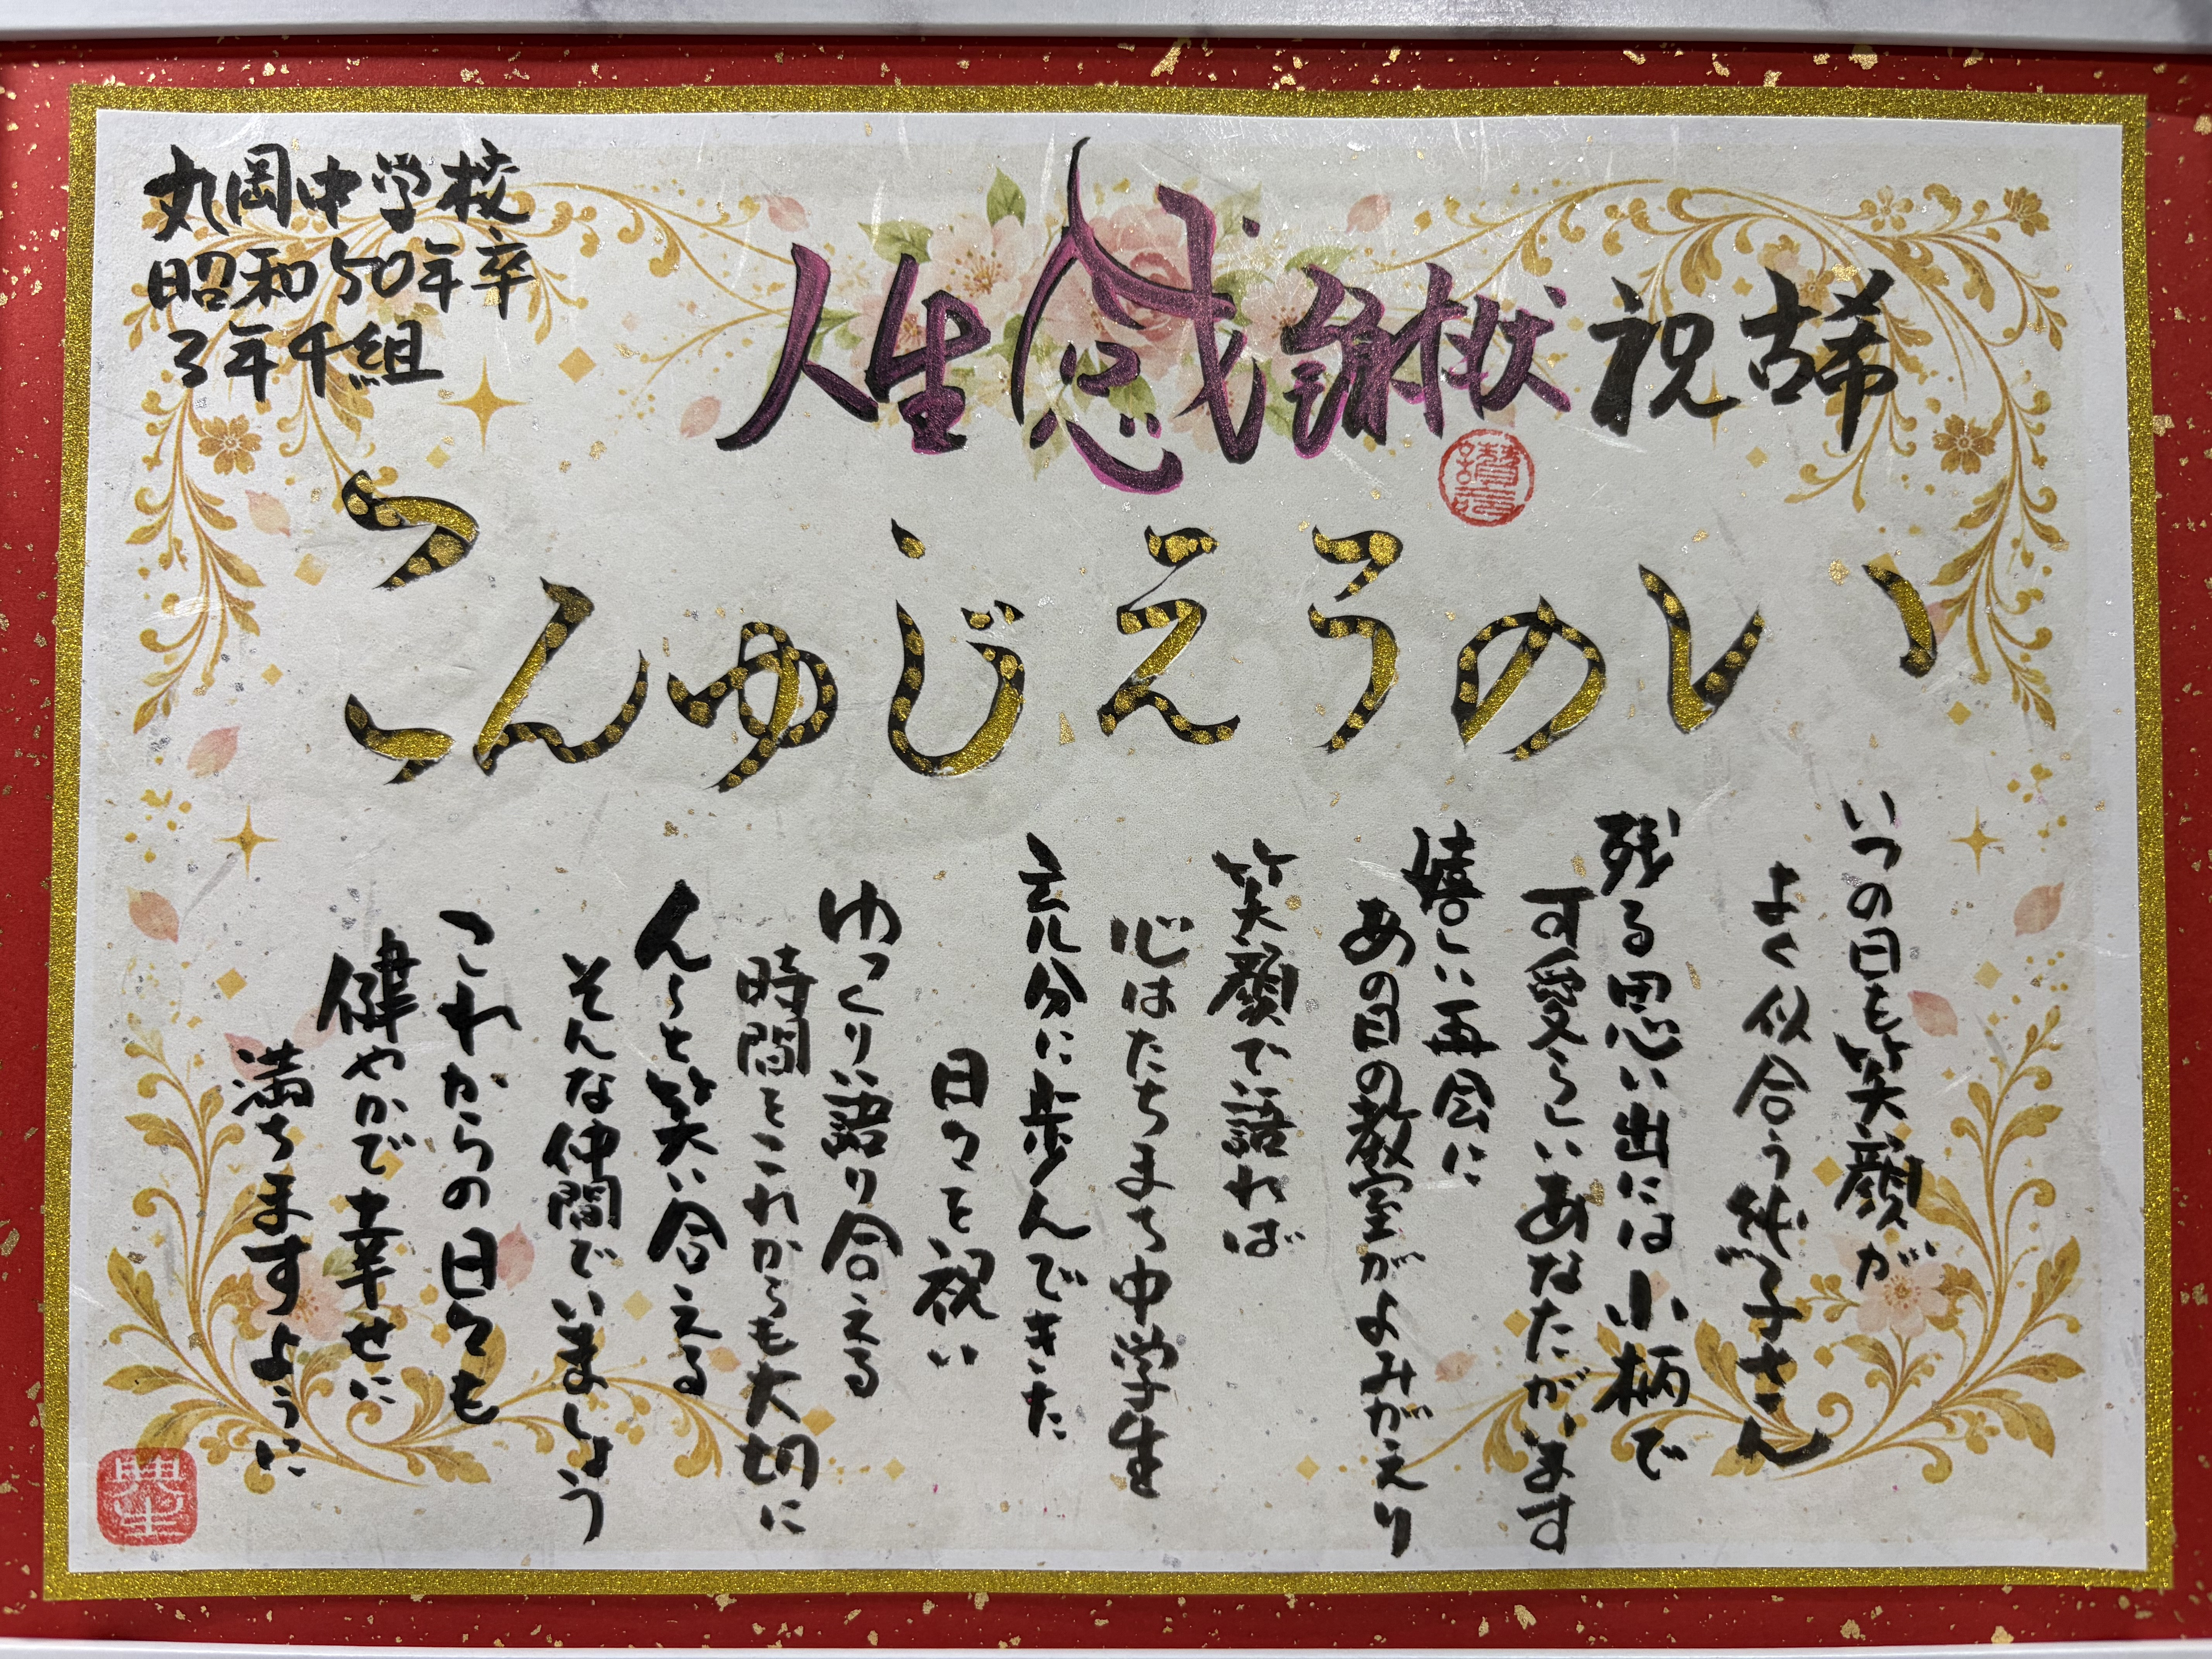 丸岡中学校
昭和50年卒
3年4組
人生感謝状 祝 古稀
いのうえじゅんこ
いつの日も笑顔が
よく似合う純子さん
残る思い出には小柄で
可愛らしいあなたがいます
嬉しい再会に
あの日の教室がよみがえり
笑顔で語れば
心はたちまち中学生
充分に歩んできた
日々を祝い
ゆっくり語り合える
時間をこれからも大切に
んーと笑い合える
そんな仲間でいましょう
これからの日々も
健やかで幸せに
満ちますように